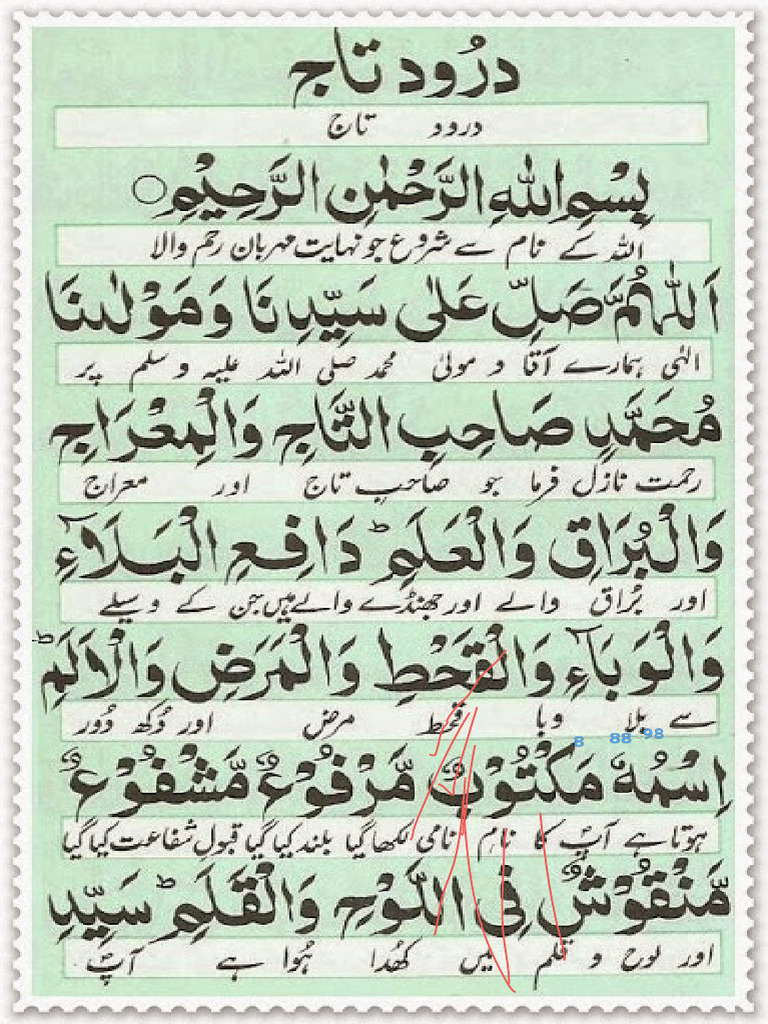 دَرُود تاج
درود تاج
بِسْمِ اللهِ الرَّحْمٰنِ الرَّحِيْمِ
اللہ کے نام سے شروع جو نہایت مہربان رحم والا
اَللّٰهُمَّ صَلِّ عَلٰى سَيِّدِنَا وَمَوْلٰىنَا
الٰہی ہمارے آقا و مولیٰ محمد صلی اللہ علیہ وسلم پر
مُحَمَّدٍ صَاحِبِ التَّاجِ وَالْمِعْرَاجِ
رحمت نازل فرما جو صاحب تاج اور معراج
وَالْبُرَاقِ وَالْعَلَمِ ؕ دَافِعِ الْبَلَآءِ
اور بُراق والے اور جھنڈے والے ہیں جن کے وسیلے
وَالْوَبَآءِ وَالْقَحْطِ وَالْمَرَضِ وَالْاَلَمِ ؕ
سے بلا وبا قحط مرض اور دُکھ دُور
8 88 98
اِسْمُهٗ مَكْتُوْبٌ مَّرْفُوْعٌ مَّشْفُوْعٌ
ہوتا ہے آپؐ کا نام نامی لکھا گیا بلند کیا گیا قبول شفاعت کیا گیا
مَّنْقُوْشٌ فِى اللَّوْحِ وَالْقَلَمِ ؕ سَيِّدِ
اور لوح و قلم میں کھُدا ہُوا ہے آپؐ